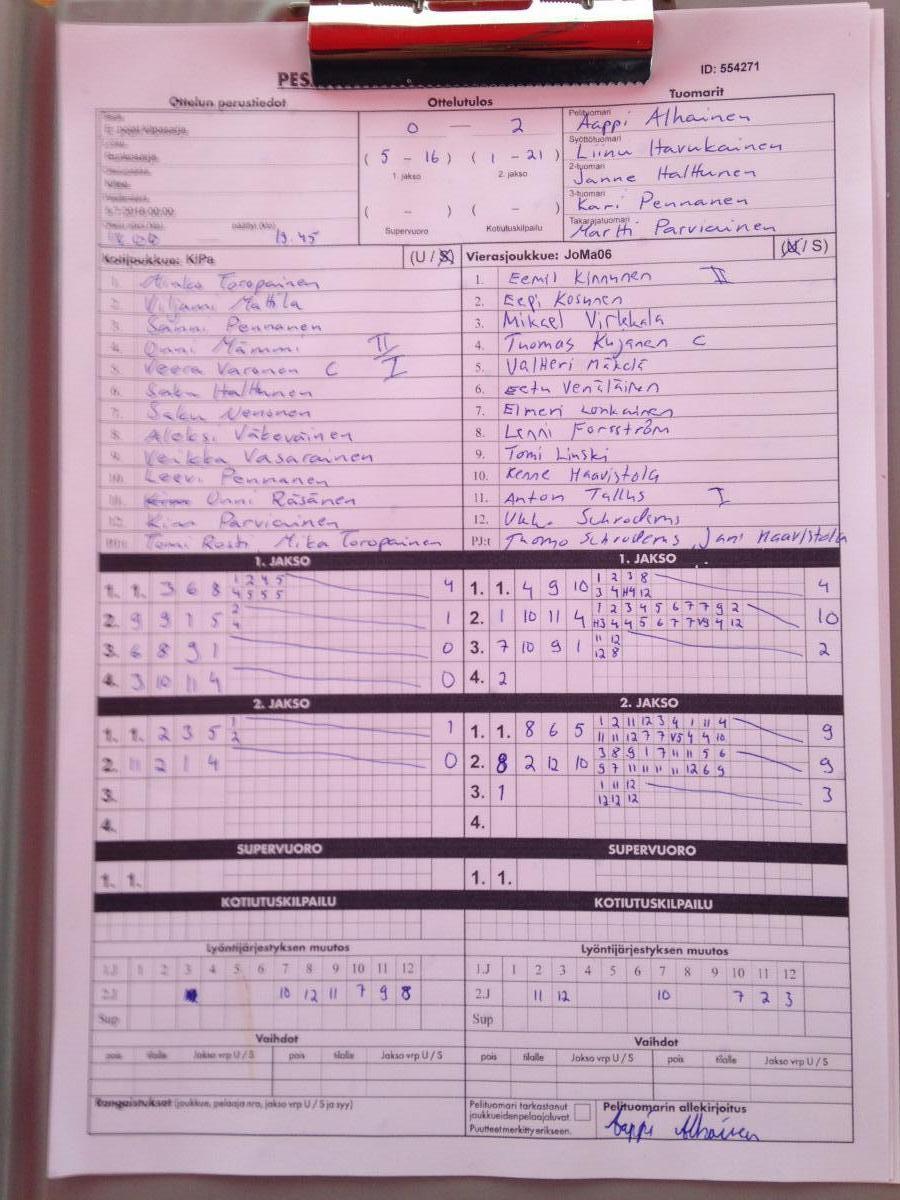 PES
ID: 554271
Ottelun perustiedot
Ottelutulos
Tuomarit
0 — 2
( 5 - 16 ) ( 1 - 21 )
1. jakso 2. jakso
( - ) ( - )
Supervuoro Kotiutuskilpailu
Pelituomari Aappi Alhainen
Syöttötuomari Liinu Havukainen
2-tuomari Janne Halttunen
3-tuomari Kari Pennanen
Takarajatuomari Martti Parviainen
19.45
Kotijoukkue: KiPa (U / S)
1. Minka Toropainen
2. Viljami Mattila
3. Sanni Pennanen
4. Onni Mämmi II
5. Veera Varonen C I
6. Saku Halttunen
7. Saku Nenonen
8. Aleksi Väkeväinen
9. Veikka Vasarainen
10. Leevi Pennanen
11. Onni Räsänen
12. Kian Parviainen
Tomi Rosti Mika Toropainen
Vierasjoukkue: JoMa06 (U / S)
1. Eemil Kinnunen II
2. Eepi Kosunen
3. Mikael Virkkala
4. Thomas Kujanen C
5. Valtteri Mäkelä
6. Eetu Venäläinen
7. Elmeri Lonkainen
8. Lenni Forsström
9. Tomi Linski
10. Kenne Haavistola
11. Anton Tallus I
12. Schroderus
PJ:t Thomo Schroderus, Jani Haavistola
1. JAKSO
1. 1. 3 6 8 1 2 4 5 4
4 5 5 5
2. 9 9 1 5 2 1
4
3. 6 8 9 1 0
4. 3 10 11 4 0
1. JAKSO
1. 1. 4 9 10 1 2 3 8 4
3 4 H4 12
2. 1 10 11 4 1 2 3 4 5 6 7 7 9 2 10
H3 4 4 5 6 7 7 V9 4 12
3. 7 10 9 1 11 12 2
12 8
4. 2
2. JAKSO
1. 1. 2 3 5 1 1
2
2. 11 2 1 4 0
3.
4.
2. JAKSO
1. 1. 8 6 5 1 2 11 12 3 4 1 11 4 9
11 11 12 7 7 V5 4 4 10
2. 8 2 12 10 3 8 9 1 7 11 11 5 6 9
9 7 11 11 11 11 12 6 9
3. 1 1 11 12 3
12 12 12
4.
SUPERVUORO
1. 1.
SUPERVUORO
1. 1.
KOTIUTUSKILPAILU
KOTIUTUSKILPAILU
Lyöntijärjestyksen muutos
1.J 1 2 3 4 5 6 7 8 9 10 11 12
2.J 10 12 11 7 9 8
Sup
Lyöntijärjestyksen muutos
1.J 1 2 3 4 5 6 7 8 9 10 11 12
2.J 11 12 10 7 2 3
Sup
Vaihdot
pois tilalle Jakso vrp U / S pois tilalle Jakso vrp U / S
Vaihdot
pois tilalle Jakso vrp U / S pois tilalle Jakso vrp U / S
Rangaistukset (joukkue, pelaaja nro, jakso vrp U / S ja syy)
Pelituomari tarkastanut
joukkueiden pelaajaluvat.
Puutteet merkitty erikseen.
Pelituomarin allekirjoitus
Aappi Alhainen